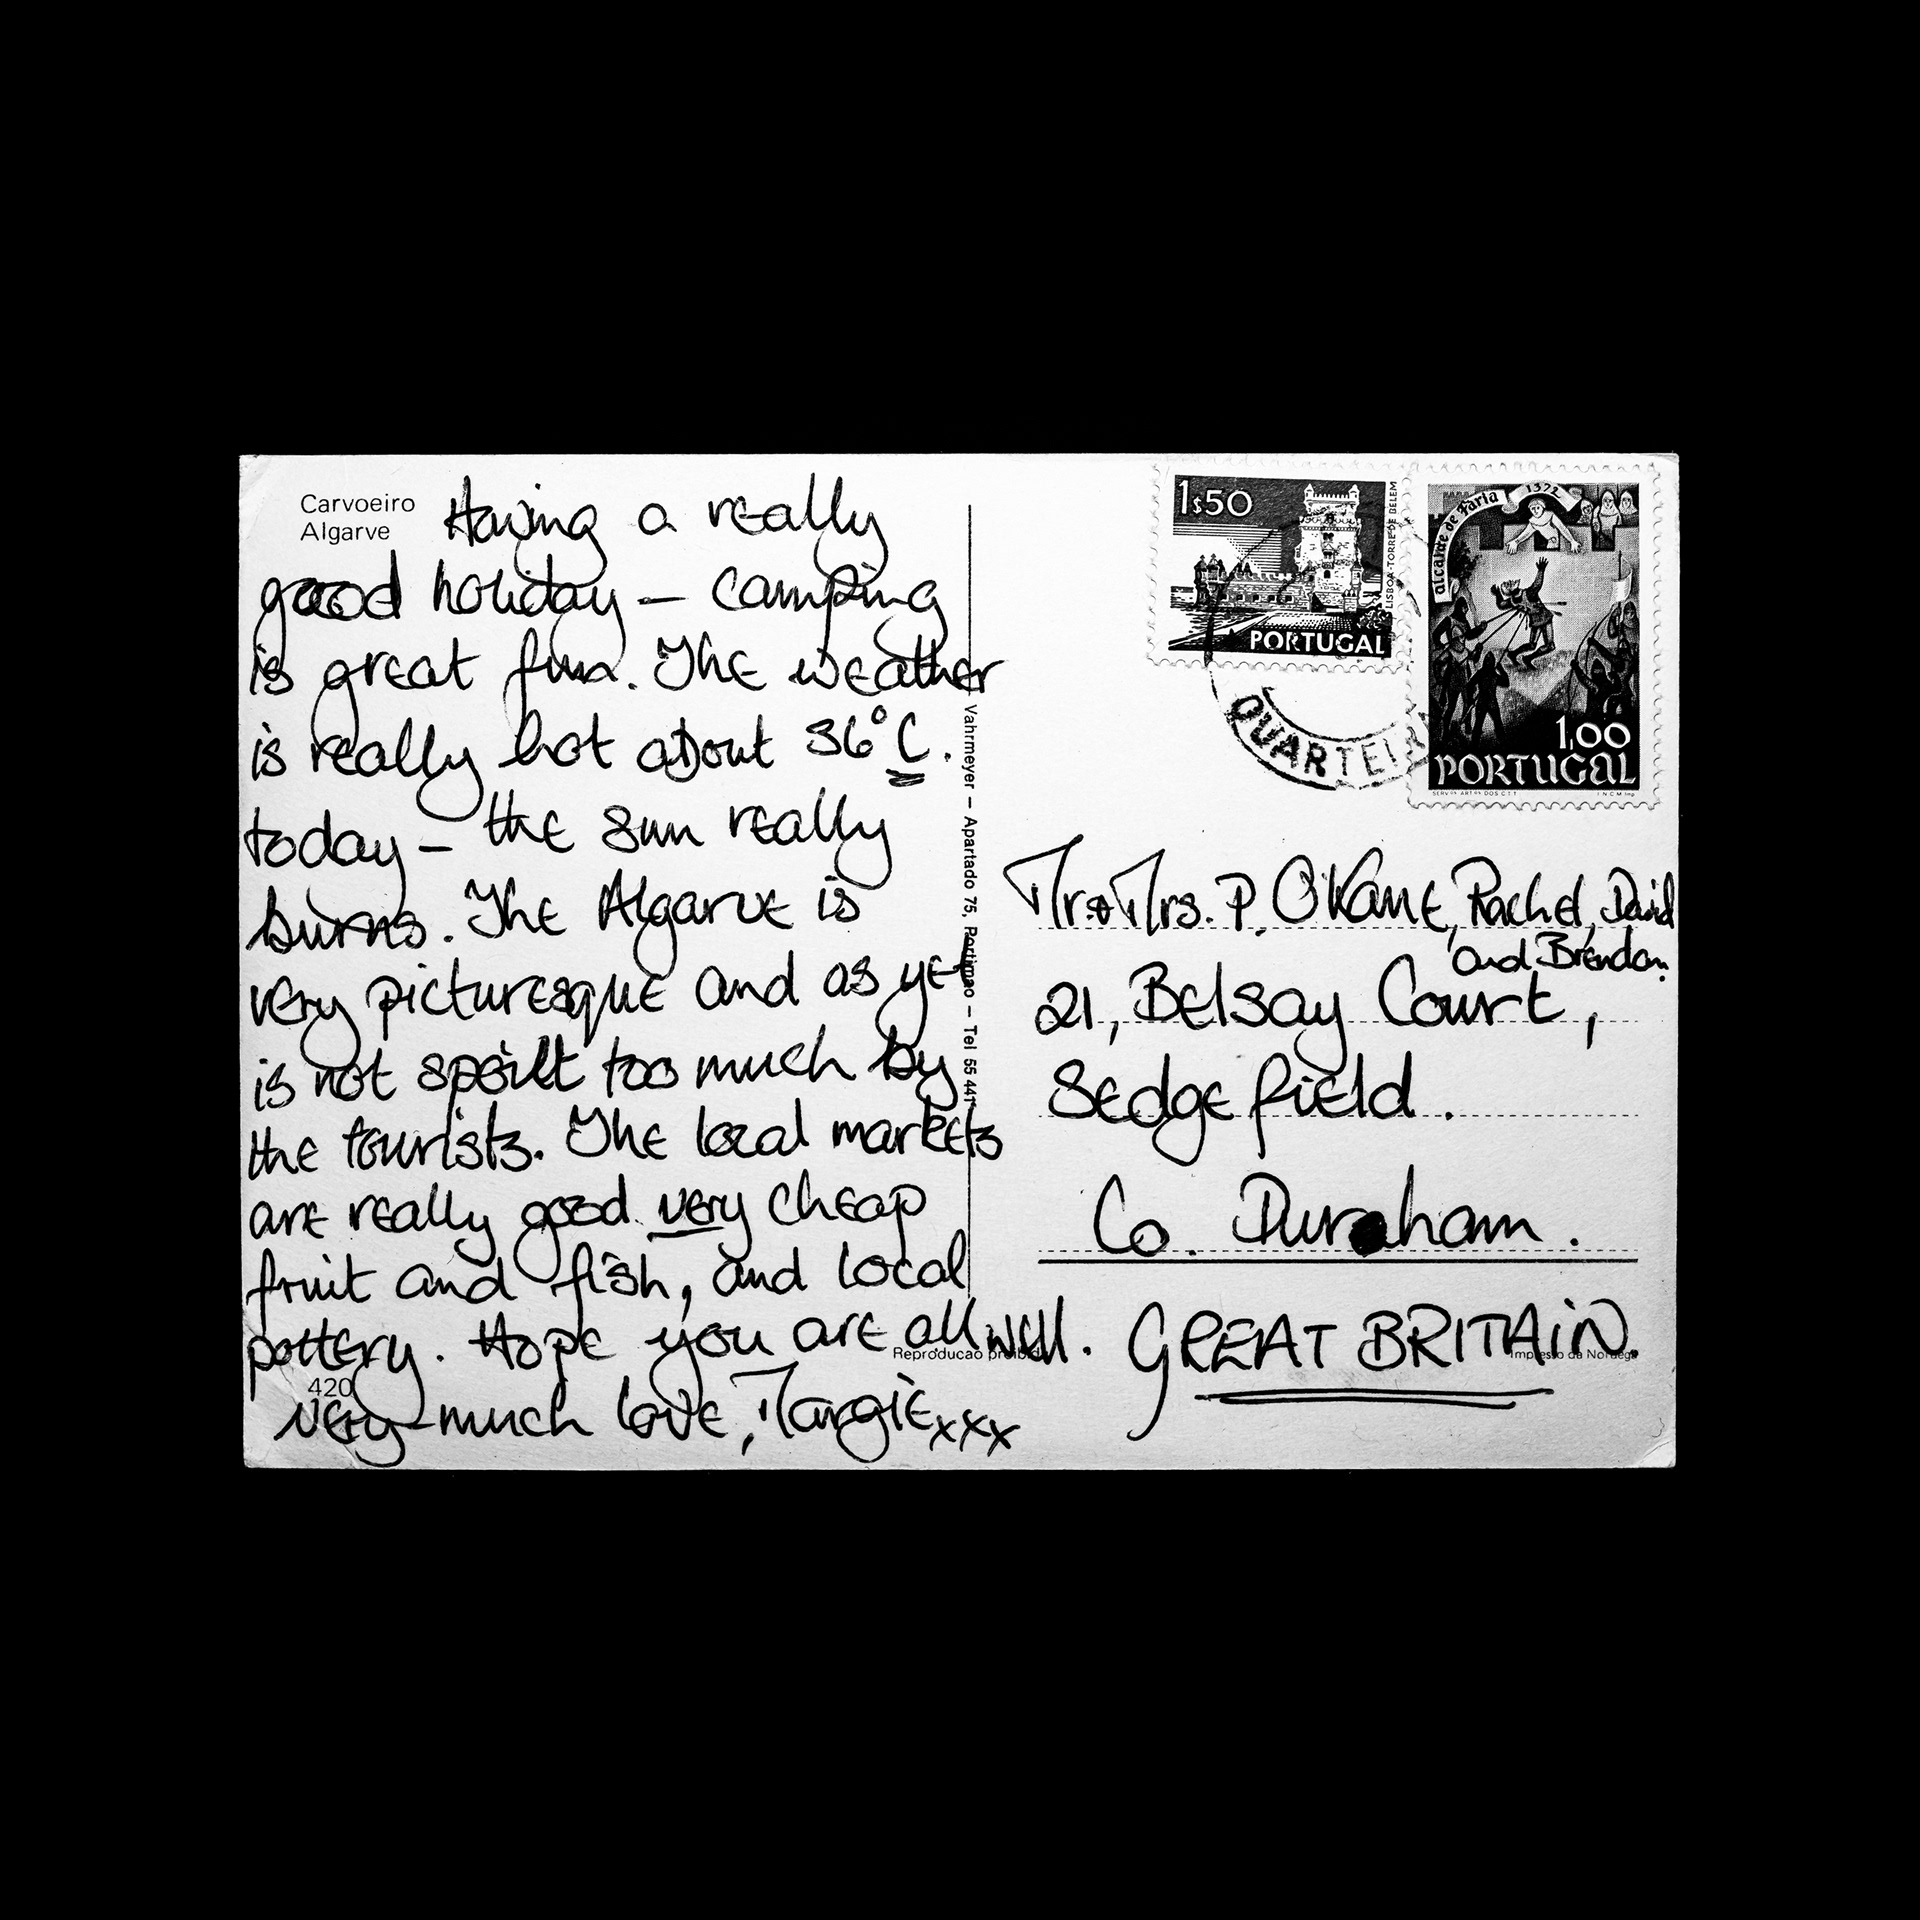 Carvoeiro
Algarve
Having a really
good holiday – camping
is great fun. The weather
is really hot about 36°C.
today – the sun really
burns. The Algarve is
very picturesque and as yet
is not spoilt too much by
the tourists. The local markets
are really good very cheap
fruit and fish, and local
pottery. Hope you are all well.
very much love, Margie xxx
420
Vahrmeyer – Apartado 75, Portimao – Tel 55 441
Reproducao proibida
1$50
LISBOA·TORRE DE BELEM
PORTUGAL
alcaide de Faria 1372
1,00
PORTUGAL
QUARTEIRA
Mr & Mrs. P. O'Kane, Rachel, David
and Brendan.
21, Belsay Court,
Sedgefield.
Co. Durham.
GREAT BRITAIN.
Impresso da Noruega